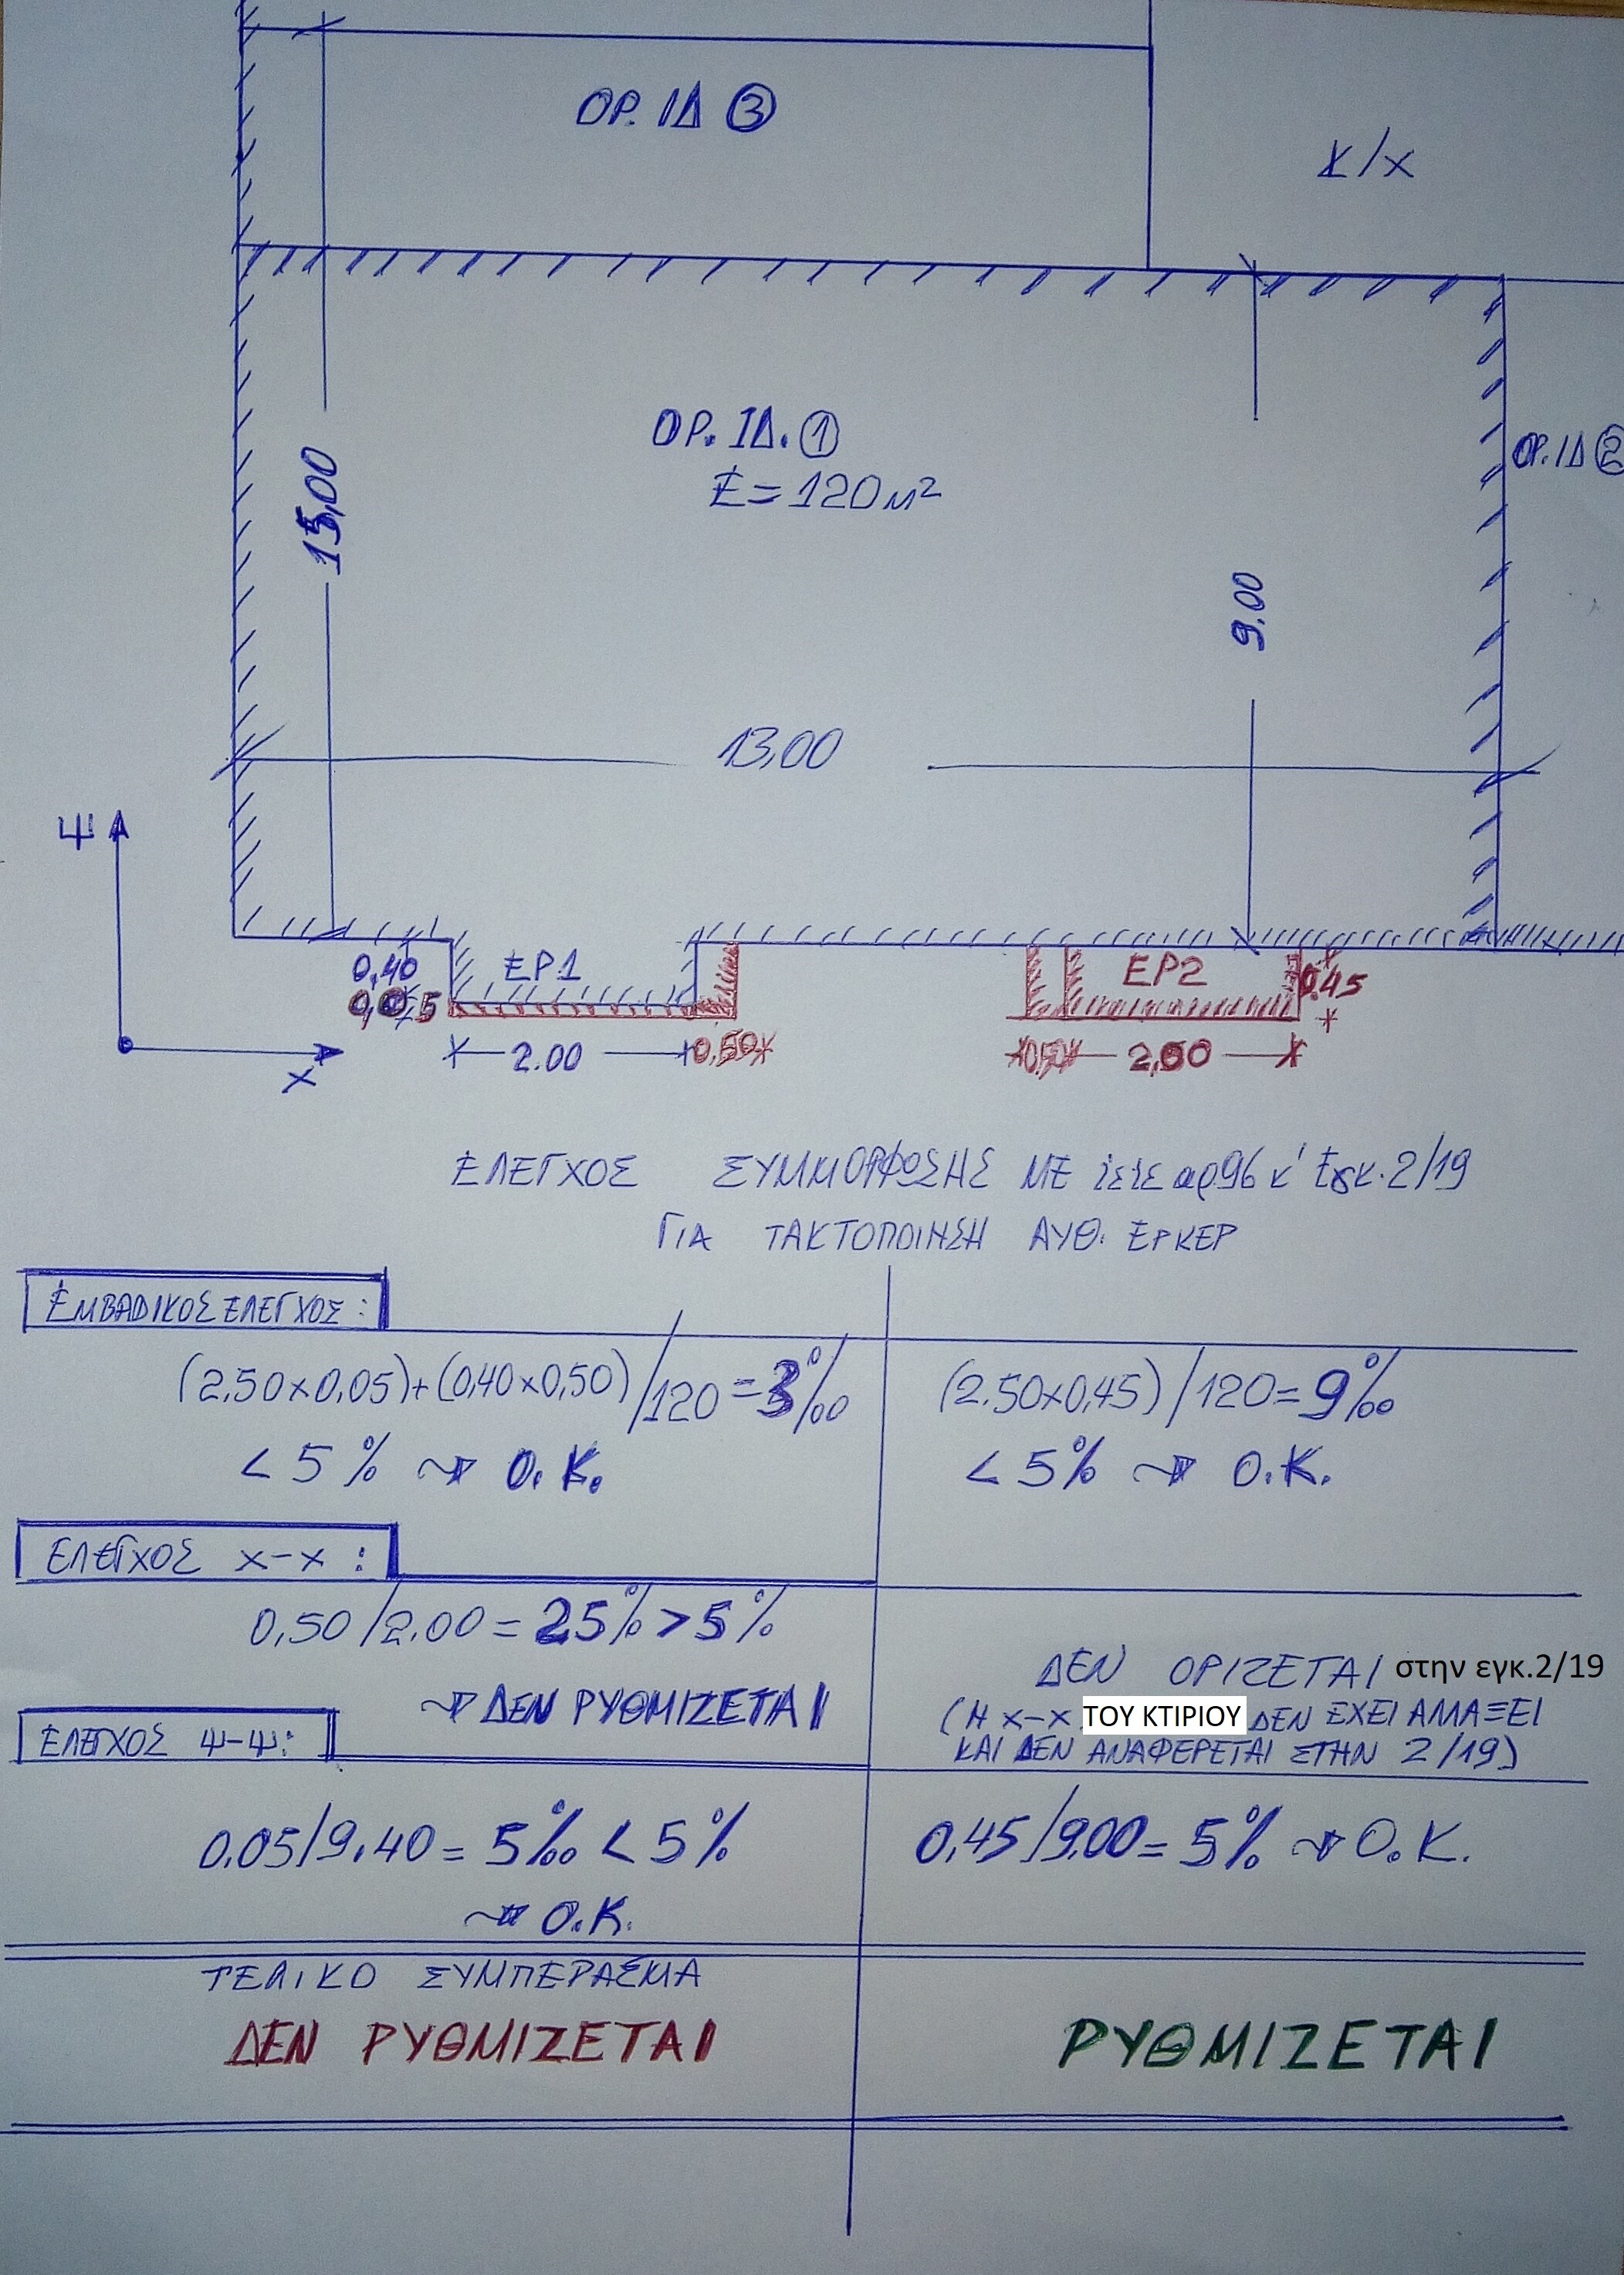 ΟΡ. ΙΔ ③
Κ/Χ
ΟΡ. ΙΔ. ①
Ε = 120 Μ²
ΟΡ. ΙΔ ②
15,00
9.00
13,00
Ψ
Χ
0,40
ΕΡ1
ΕΡ2
0,45
2.00
0,50
0,50
ΕΛΕΓΧΟΣ ΣΥΜΜΟΡΦΩΣΗΣ ΜΕ αρ96 κ' Εγκ. 2/19
ΓΙΑ ΤΑΚΤΟΠΟΙΗΣΗ ΑΥΘ. ΕΡΚΕΡ
ΕΜΒΑΔΙΚΟΣ ΕΛΕΓΧΟΣ:
(2,50x0,05)+(0,40x0,50)/120=3‰
< 5% Ο.Κ.
(2.50x0,45)/120=9‰
< 5% Ο.Κ.
ΕΛΕΓΧΟΣ Χ-Χ :
0,50/2,00 = 25% > 5%
ΔΕΝ ΡΥΘΜΙΖΕΤΑΙ
ΔΕΝ ΟΡΙΖΕΤΑΙ στην εγκ.2/19
(Η Χ-Χ ΤΟΥ ΚΤΙΡΙΟΥ ΔΕΝ ΕΧΕΙ ΑΛΛΑΞΕΙ
ΚΑΙ ΔΕΝ ΑΝΑΦΕΡΕΤΑΙ ΣΤΗΝ 2/19)
ΕΛΕΓΧΟΣ Ψ-Ψ:
0.05/9.40 = 5‰ < 5%
Ο.Κ.
0,45/9,00= 5% Ο.Κ.
ΤΕΛΙΚΟ ΣΥΜΠΕΡΑΣΜΑ
ΔΕΝ ΡΥΘΜΙΖΕΤΑΙ
ΡΥΘΜΙΖΕΤΑΙ